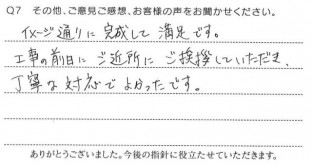 Q7 その他、ご意見ご感想、お客様の声をお聞かせください。
イメージ通りに完成して満足です。
工事の前日にご近所にご挨拶していただき、
丁寧な対応でよかったです。
ありがとうございました。今後の指針に役立たせていただきます。